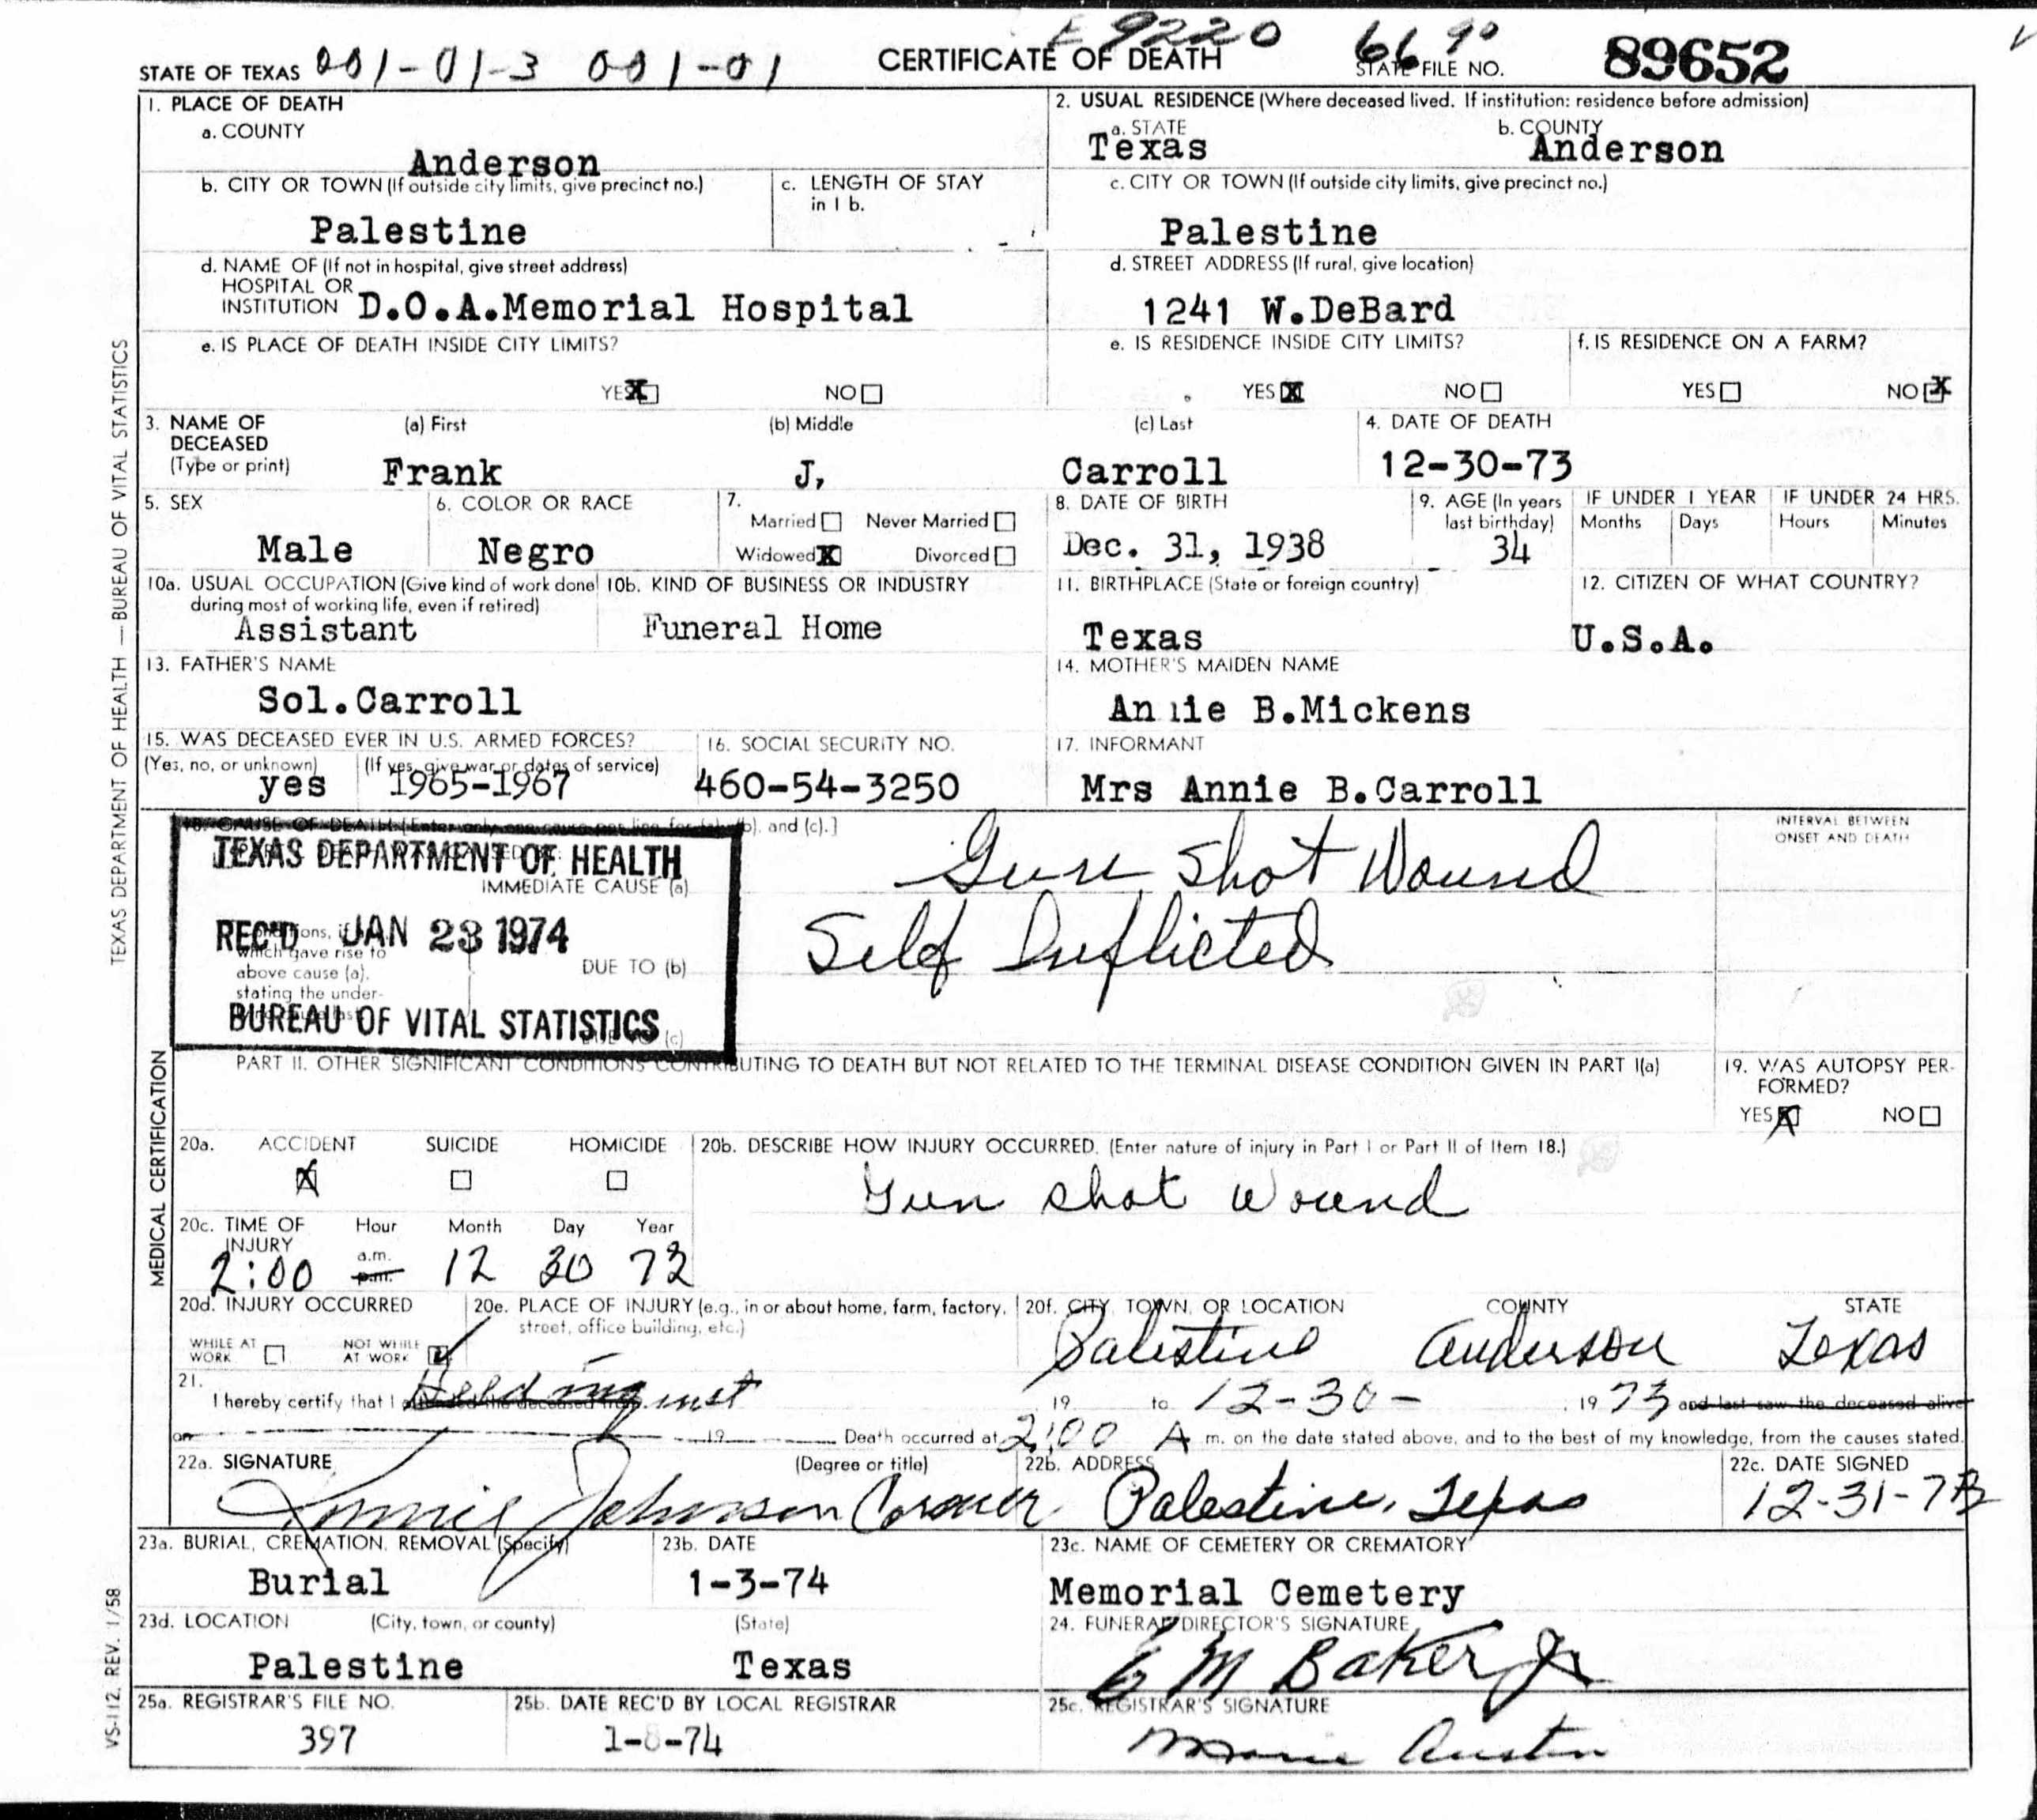 STATE OF TEXAS 001-01-3 001-01 CERTIFICATE OF DEATH E 9220 6690 STATE FILE NO. 89652
1. PLACE OF DEATH
a. COUNTY
Anderson
2. USUAL RESIDENCE (Where deceased lived. If institution: residence before admission)
a. STATE b. COUNTY
Texas Anderson
b. CITY OR TOWN (If outside city limits, give precinct no.)
Palestine
c. LENGTH OF STAY
in 1 b.
c. CITY OR TOWN (If outside city limits, give precinct no.)
Palestine
d. NAME OF (If not in hospital, give street address)
HOSPITAL OR
INSTITUTION D.O.A.Memorial Hospital
d. STREET ADDRESS (If rural, give location)
1241 W.DeBard
e. IS PLACE OF DEATH INSIDE CITY LIMITS?
YES X NO
e. IS RESIDENCE INSIDE CITY LIMITS?
YES X NO
f. IS RESIDENCE ON A FARM?
YES NO X
3. NAME OF DECEASED
(Type or print)
(a) First (b) Middle (c) Last
Frank J, Carroll
4. DATE OF DEATH
12-30-73
5. SEX
Male
6. COLOR OR RACE
Negro
7.
Married Never Married
Widowed X Divorced
8. DATE OF BIRTH
Dec. 31, 1938
9. AGE (In years
last birthday)
34
IF UNDER 1 YEAR IF UNDER 24 HRS.
Months Days Hours Minutes
10a. USUAL OCCUPATION (Give kind of work done
during most of working life, even if retired)
Assistant
10b. KIND OF BUSINESS OR INDUSTRY
Funeral Home
11. BIRTHPLACE (State or foreign country)
Texas
12. CITIZEN OF WHAT COUNTRY?
U.S.A.
13. FATHER'S NAME
Sol.Carroll
14. MOTHER'S MAIDEN NAME
Annie B.Mickens
15. WAS DECEASED EVER IN U.S. ARMED FORCES?
(Yes, no, or unknown) (If yes, give war or dates of service)
yes 1965-1967
16. SOCIAL SECURITY NO.
460-54-3250
17. INFORMANT
Mrs Annie B.Carroll
18. CAUSE OF DEATH [Enter only one cause per line for (a), (b), and (c).]
INTERVAL BETWEEN
ONSET AND DEATH
TEXAS DEPARTMENT OF HEALTH
IMMEDIATE CAUSE (a)
Gun shot Wound
REC'D JAN 23 1974
which gave rise to
above cause (a),
stating the under-
DUE TO (b)
Self Inflicted
BUREAU OF VITAL STATISTICS
(c)
PART II. OTHER SIGNIFICANT CONDITIONS CONTRIBUTING TO DEATH BUT NOT RELATED TO THE TERMINAL DISEASE CONDITION GIVEN IN PART I(a)
19. WAS AUTOPSY PER-
FORMED?
YES X NO
20a. ACCIDENT SUICIDE HOMICIDE
X
20b. DESCRIBE HOW INJURY OCCURRED. (Enter nature of injury in Part I or Part II of Item 18.)
Gun shot wound
20c. TIME OF
INJURY
Hour Month Day Year
2:00 a.m. p.m. 12 30 73
20d. INJURY OCCURRED
WHILE AT
WORK
NOT WHILE
AT WORK
20e. PLACE OF INJURY (e.g., in or about home, farm, factory,
street, office building, etc.)
20f. CITY, TOWN, OR LOCATION COUNTY STATE
Palestine Anderson Texas
21.
I hereby certify that I attended the deceased from Held inquest , 19 to 12-30- , 19 73 and last saw the deceased alive
on 19 Death occurred at 2:00 A m. on the date stated above, and to the best of my knowledge, from the causes stated.
22a. SIGNATURE (Degree or title)
Lonnie Johnson Coroner
22b. ADDRESS
Palestine, Texas
22c. DATE SIGNED
12-31-73
23a. BURIAL, CREMATION, REMOVAL (Specify)
Burial
23b. DATE
1-3-74
23c. NAME OF CEMETERY OR CREMATORY
Memorial Cemetery
23d. LOCATION (City, town, or county) (State)
Palestine Texas
24. FUNERAL DIRECTOR'S SIGNATURE
E M Baker Jr
25a. REGISTRAR'S FILE NO.
397
25b. DATE REC'D BY LOCAL REGISTRAR
1-8-74
25c. REGISTRAR'S SIGNATURE
Marie Austin
TEXAS DEPARTMENT OF HEALTH — BUREAU OF VITAL STATISTICS
MEDICAL CERTIFICATION
VS-112, REV. 1/58